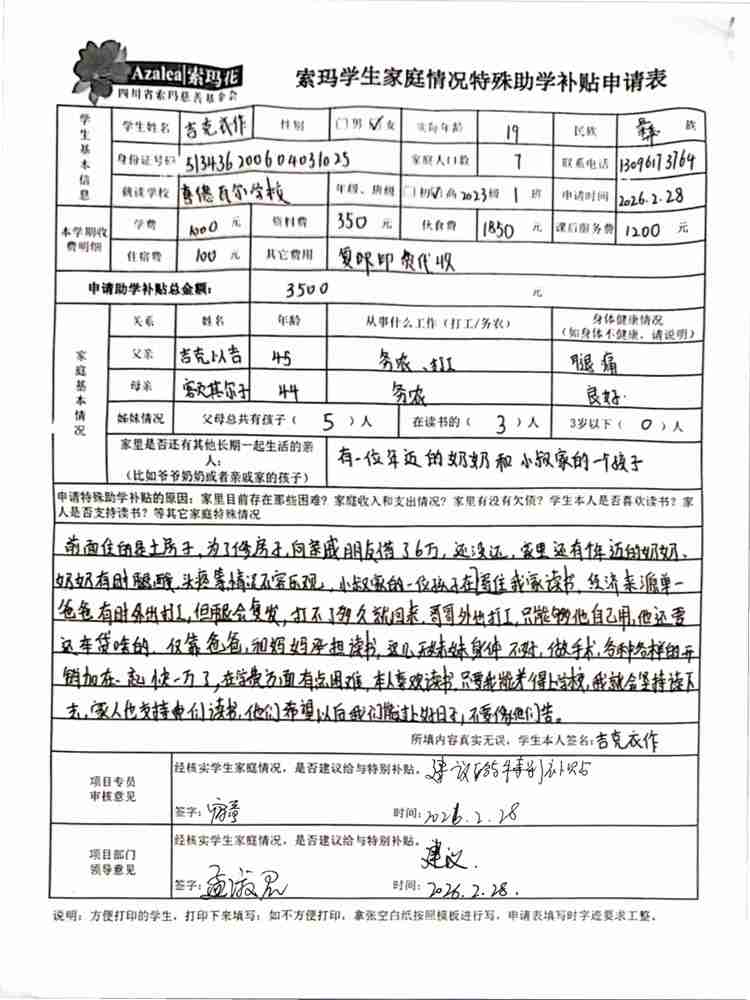 Azalea 索玛花
四川省索玛慈善基金会
索玛学生家庭情况特殊助学补贴申请表
学生基本信息
学生姓名 吉克衣作 性别 □男 ☑女 实际年龄 19 民族 彝 族
身份证号码 513436200604031025 家庭人口数 7 联系电话 13096173764
就读学校 喜德瓦尔学校 年级、班级 □初 ☑高 2023级 1 班 申请时间 2026.2.28
本学期收费明细
学费 1000 元 资料费 350 元 伙食费 1850 元 课后服务费 1200 元
住宿费 100 元 其它费用 复印费代收
申请助学补贴总金额: 3500 元
家庭基本情况
关系 姓名 年龄 从事什么工作(打工/务农) 身体健康情况(如身体不健康,请说明)
父亲 吉克以吉 45 务农、打工 腿痛
母亲 其尔子 44 务农 良好.
姊妹情况 父母总共有孩子( 5 )人 在读书的( 3 )人 3岁以下( 0 )人
家里是否还有其他长期一起生活的亲人:
(比如爷爷奶奶或者亲戚家的孩子)
有一位年迈的奶奶和小叔家的一个孩子
申请特殊助学补贴的原因:家里目前存在那些困难?家庭收入和支出情况?家里有没有欠债?学生本人是否喜欢读书?家
人是否支持读书?等其它家庭特殊情况
前面住的是土房子,为了修房子,向亲戚朋友借了6万,还没还,家里还有年迈的奶奶、
奶奶有时腿酸、头疼等情况不容乐观,小叔家的一位孩子在寄住我家读书,经济来源单一
爸爸有时外出打工,但腿会复发,打不了多久就回来,哥哥外出打工,只能够他自己用,他还要
还车贷啥的.仅靠爸爸,和妈妈承担读书,这几天妹妹身体不好,做手术,各种各样的开
销加在一起快一万了,在学费方面有点困难,本人喜欢读书,只要我能养得上学校,我就会坚持读下
去,家人也支持我们读书,他们希望以后我们能过上好日子,不要像他们苦。
所填内容真实无误,学生本人签名:吉克衣作
项目专员审核意见
经核实学生家庭情况,是否建议给与特别补贴。建议给特别补贴
签字: 时间:2026.2.28
项目部门领导意见
经核实学生家庭情况,是否建议给与特别补贴。建议.
签字:孟淑君 时间:2026.2.28.
说明:方便打印的学生,打印下来填写;如不方便打印,拿张空白纸按照模板进行写,申请表填写时字迹要求工整。